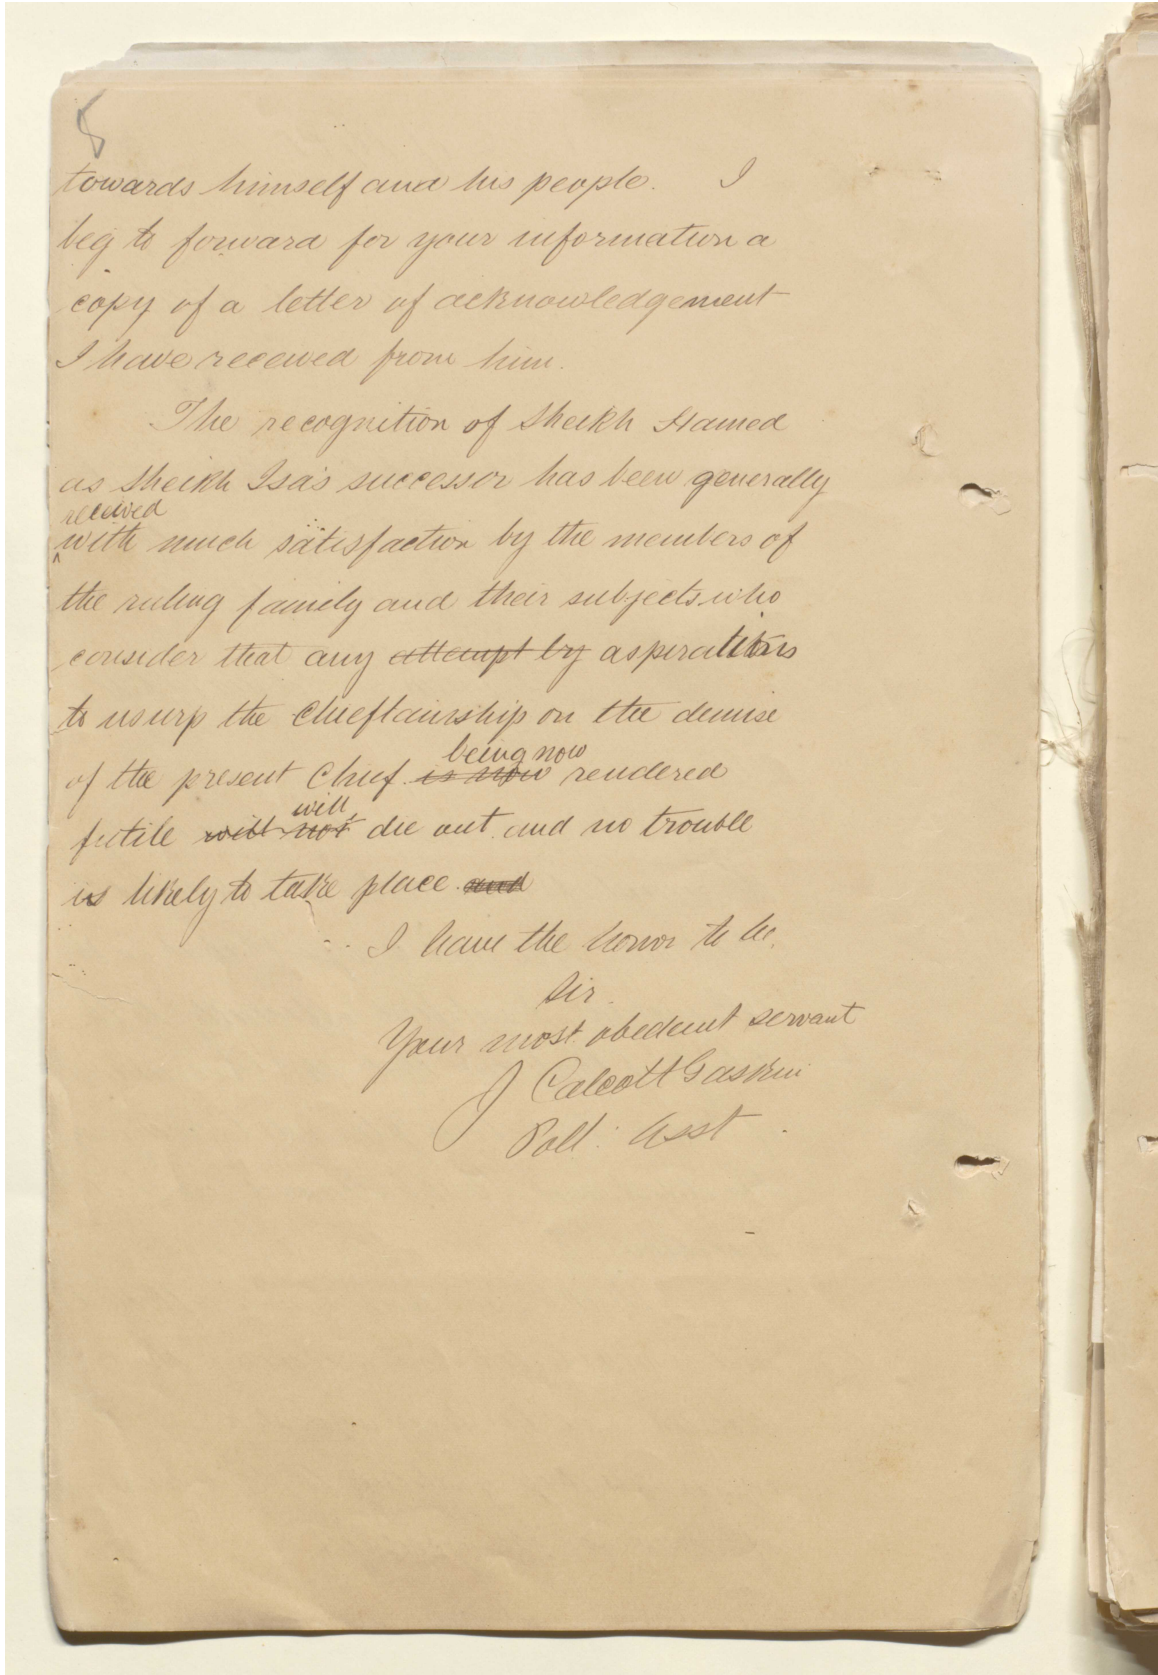 8
towards himself and his people. I
beg to forward for your information a
copy of a letter of acknowledgement
I have received from him.
The recognition of Sheikh Hamed
as Sheikh Isa's successor has been generally
received
with much satisfaction by the members of
the ruling family and their subjects who
consider that any attempt by aspirations
to usurp the Chieftainship on the demise
being now
of the present Chief is now rendered
will
futile will not die out and no trouble
is likely to take place and
I have the honor to be,
Sir.
Your most obedient servant
J Calcott Gaskin
Poll: Asst.